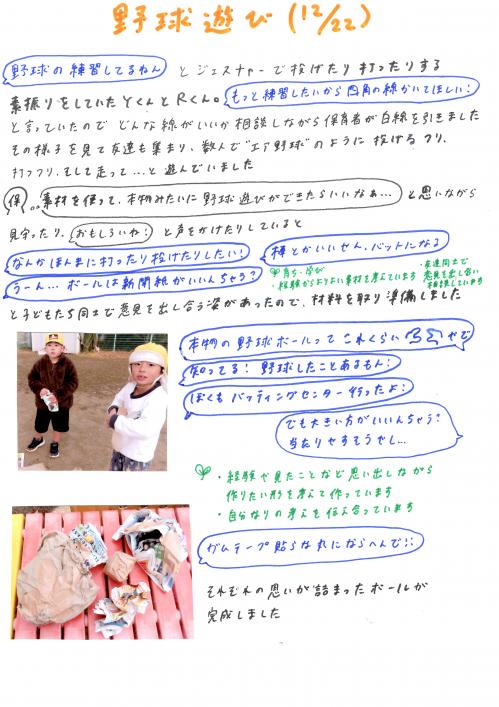 野球遊び(12/22)
野球の練習してるねん とジェスチャーで投げたり打ったりする
素振りをしていたYくんとRくん。もっと練習したいから四角の線かいてほしい!
と言っていたので どんな線がいいか相談しながら保育者が白線を引きました
その様子を見て友達も集まり、数人で"エア野球"のように 投げるフリ、
打つフリ、そして走って…と遊んでいました
保。。素材を使って、本物みたいに野球遊びができたらいいなぁ…と思いながら
見守ったり、おもしろいね!と声をかけたりしていると
なんかほんまに打ったり投げたりしたい!
棒とかいいやん、バットになる
うーん…ボールは新聞紙がいいんちゃう?
育ち・学び
・経験からよりよい素材を考えています
・友達同士で
意見を出し合い
相談しています
と子どもたち同士で意見を出し合う姿があったので、材料を取り準備しました
本物の野球ボールって これくらい やで
知ってる!野球したことあるもん!
ぼくもバッティングセンター行ったよ!
でも大きい方がいいんちゃう?
当たりやすそうやし…
・経験や見たことなど思い出しながら
作りたい形を考えて作っています
・自分なりの考えを伝え合っています
ガムテープ貼らな丸にならへんで!!
それぞれの思いが詰まったボールが
完成しました